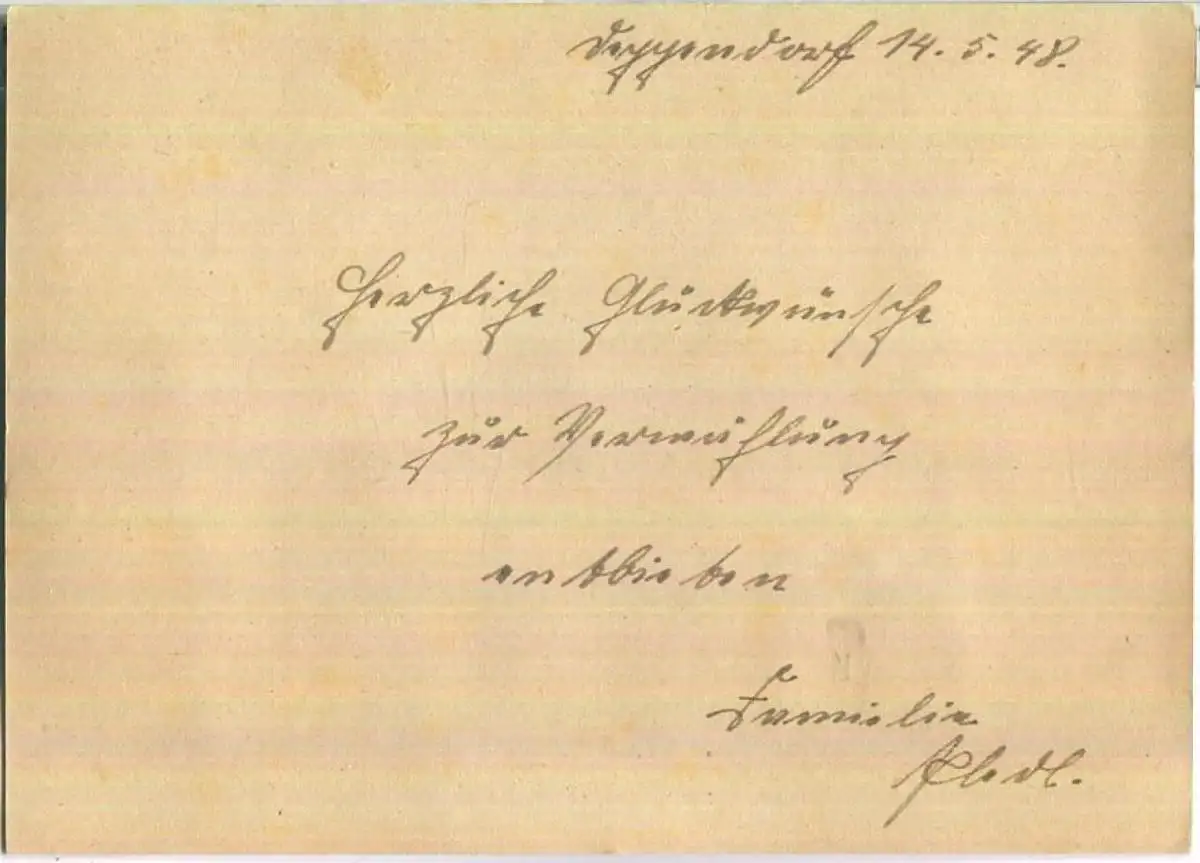 Deppendorf 14. 5. 48.
Herzliche Glückwünsche
zur Vermählung
entbieten
Familie